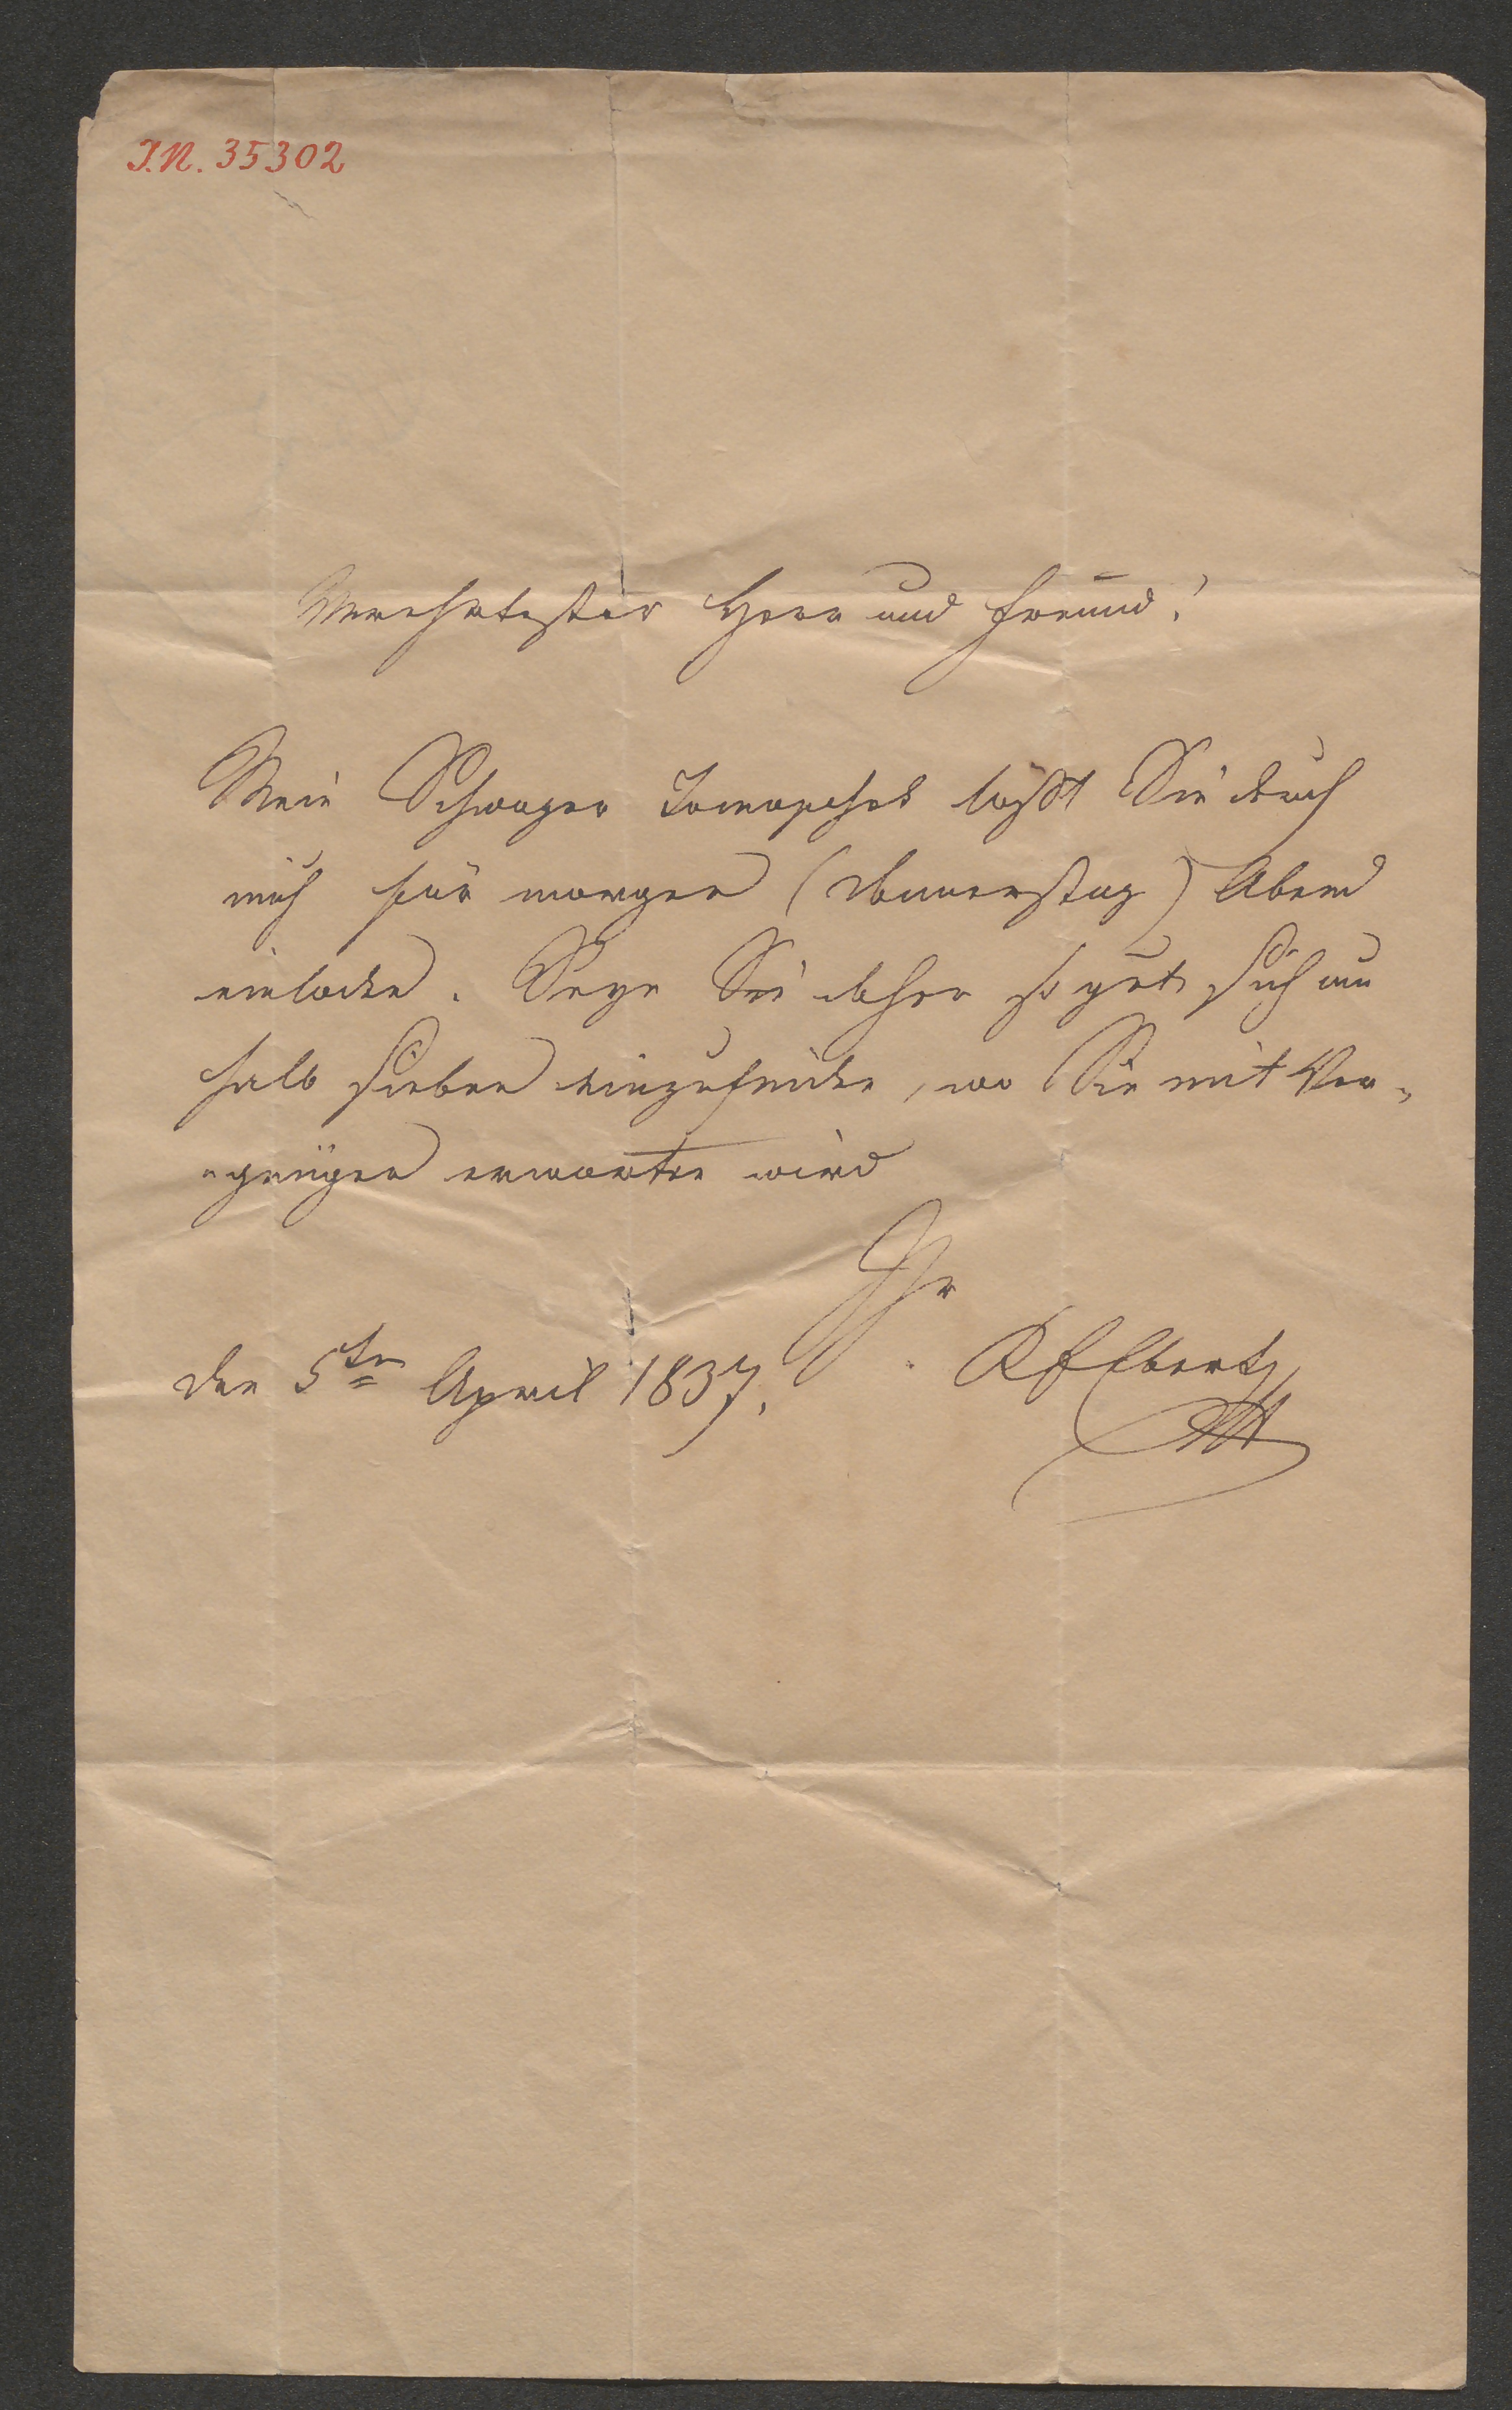 I.N. 35302
Verehrtester Herr und Freund!
Mein Schwager Tomaschek laßt Sie durch
mich für morgen (Donnerstag) Abend
einladen. Seyn Sie daher so gut, sich um
halb sieben einzufinden, wo Sie mit Ver-
-gnügen erwarten wird
Ihr
den 5ten April 1837.
K E Ebert